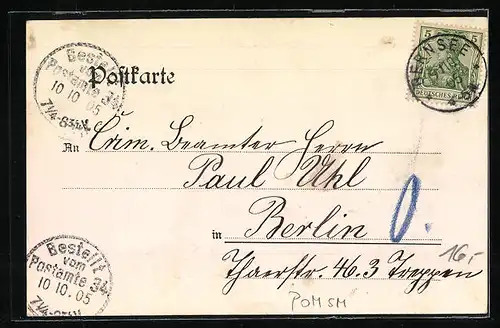 Bestellt
vom
Postamte 34
10 10. 05
7¼-8¾V.
Postkarte
5 5
DEUTSCHES REICH
An Crim. Beamter Herrn
Paul Uhl
in Berlin O.
Thaerstr. 46. 3 Treppen
16,-
Bestellt
vom
Postamte 34
10 10. 05
POMSM